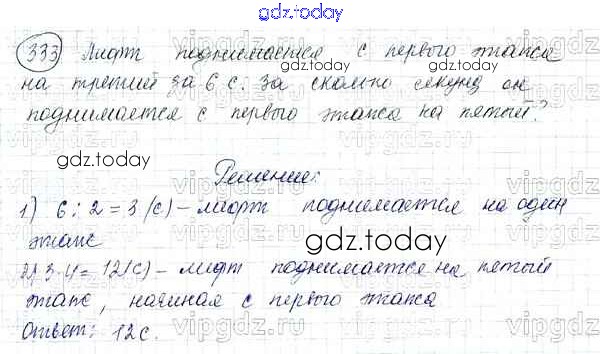 gdz.today
333 Лифт поднимается с первого этажа
на третий за 6 с. За сколько секунд он
gdz.today
поднимается с первого этажа на пятый?
gdz.today
Решение:
1) 6 : 2 = 3 (с) – лифт поднимается на один
этаж
gdz.today
2) 3·4 = 12 (с) – лифт поднимается на пятый
этаж, начиная с первого этажа
Ответ: 12 с.
gdz.today
vipgdz.ru